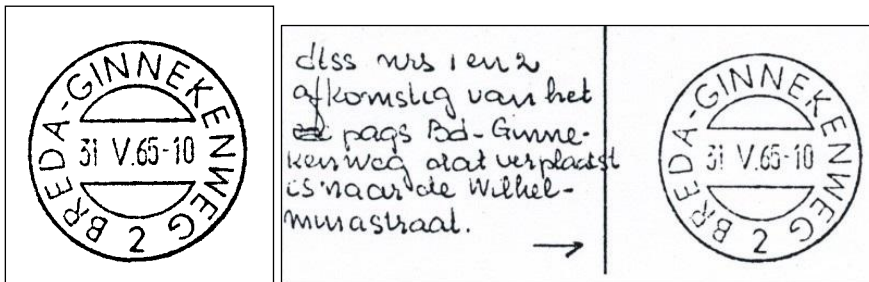 BREDA-GINNEKENWEG 2
31 V.65-10
dtss nrs 1 en 2
afkomstig van het
pags Bd-Ginne-
kenweg dat verplaatst
is naar de Wilhel-
minastraat.
→
BREDA-GINNEKENWEG 2
31 V.65-10